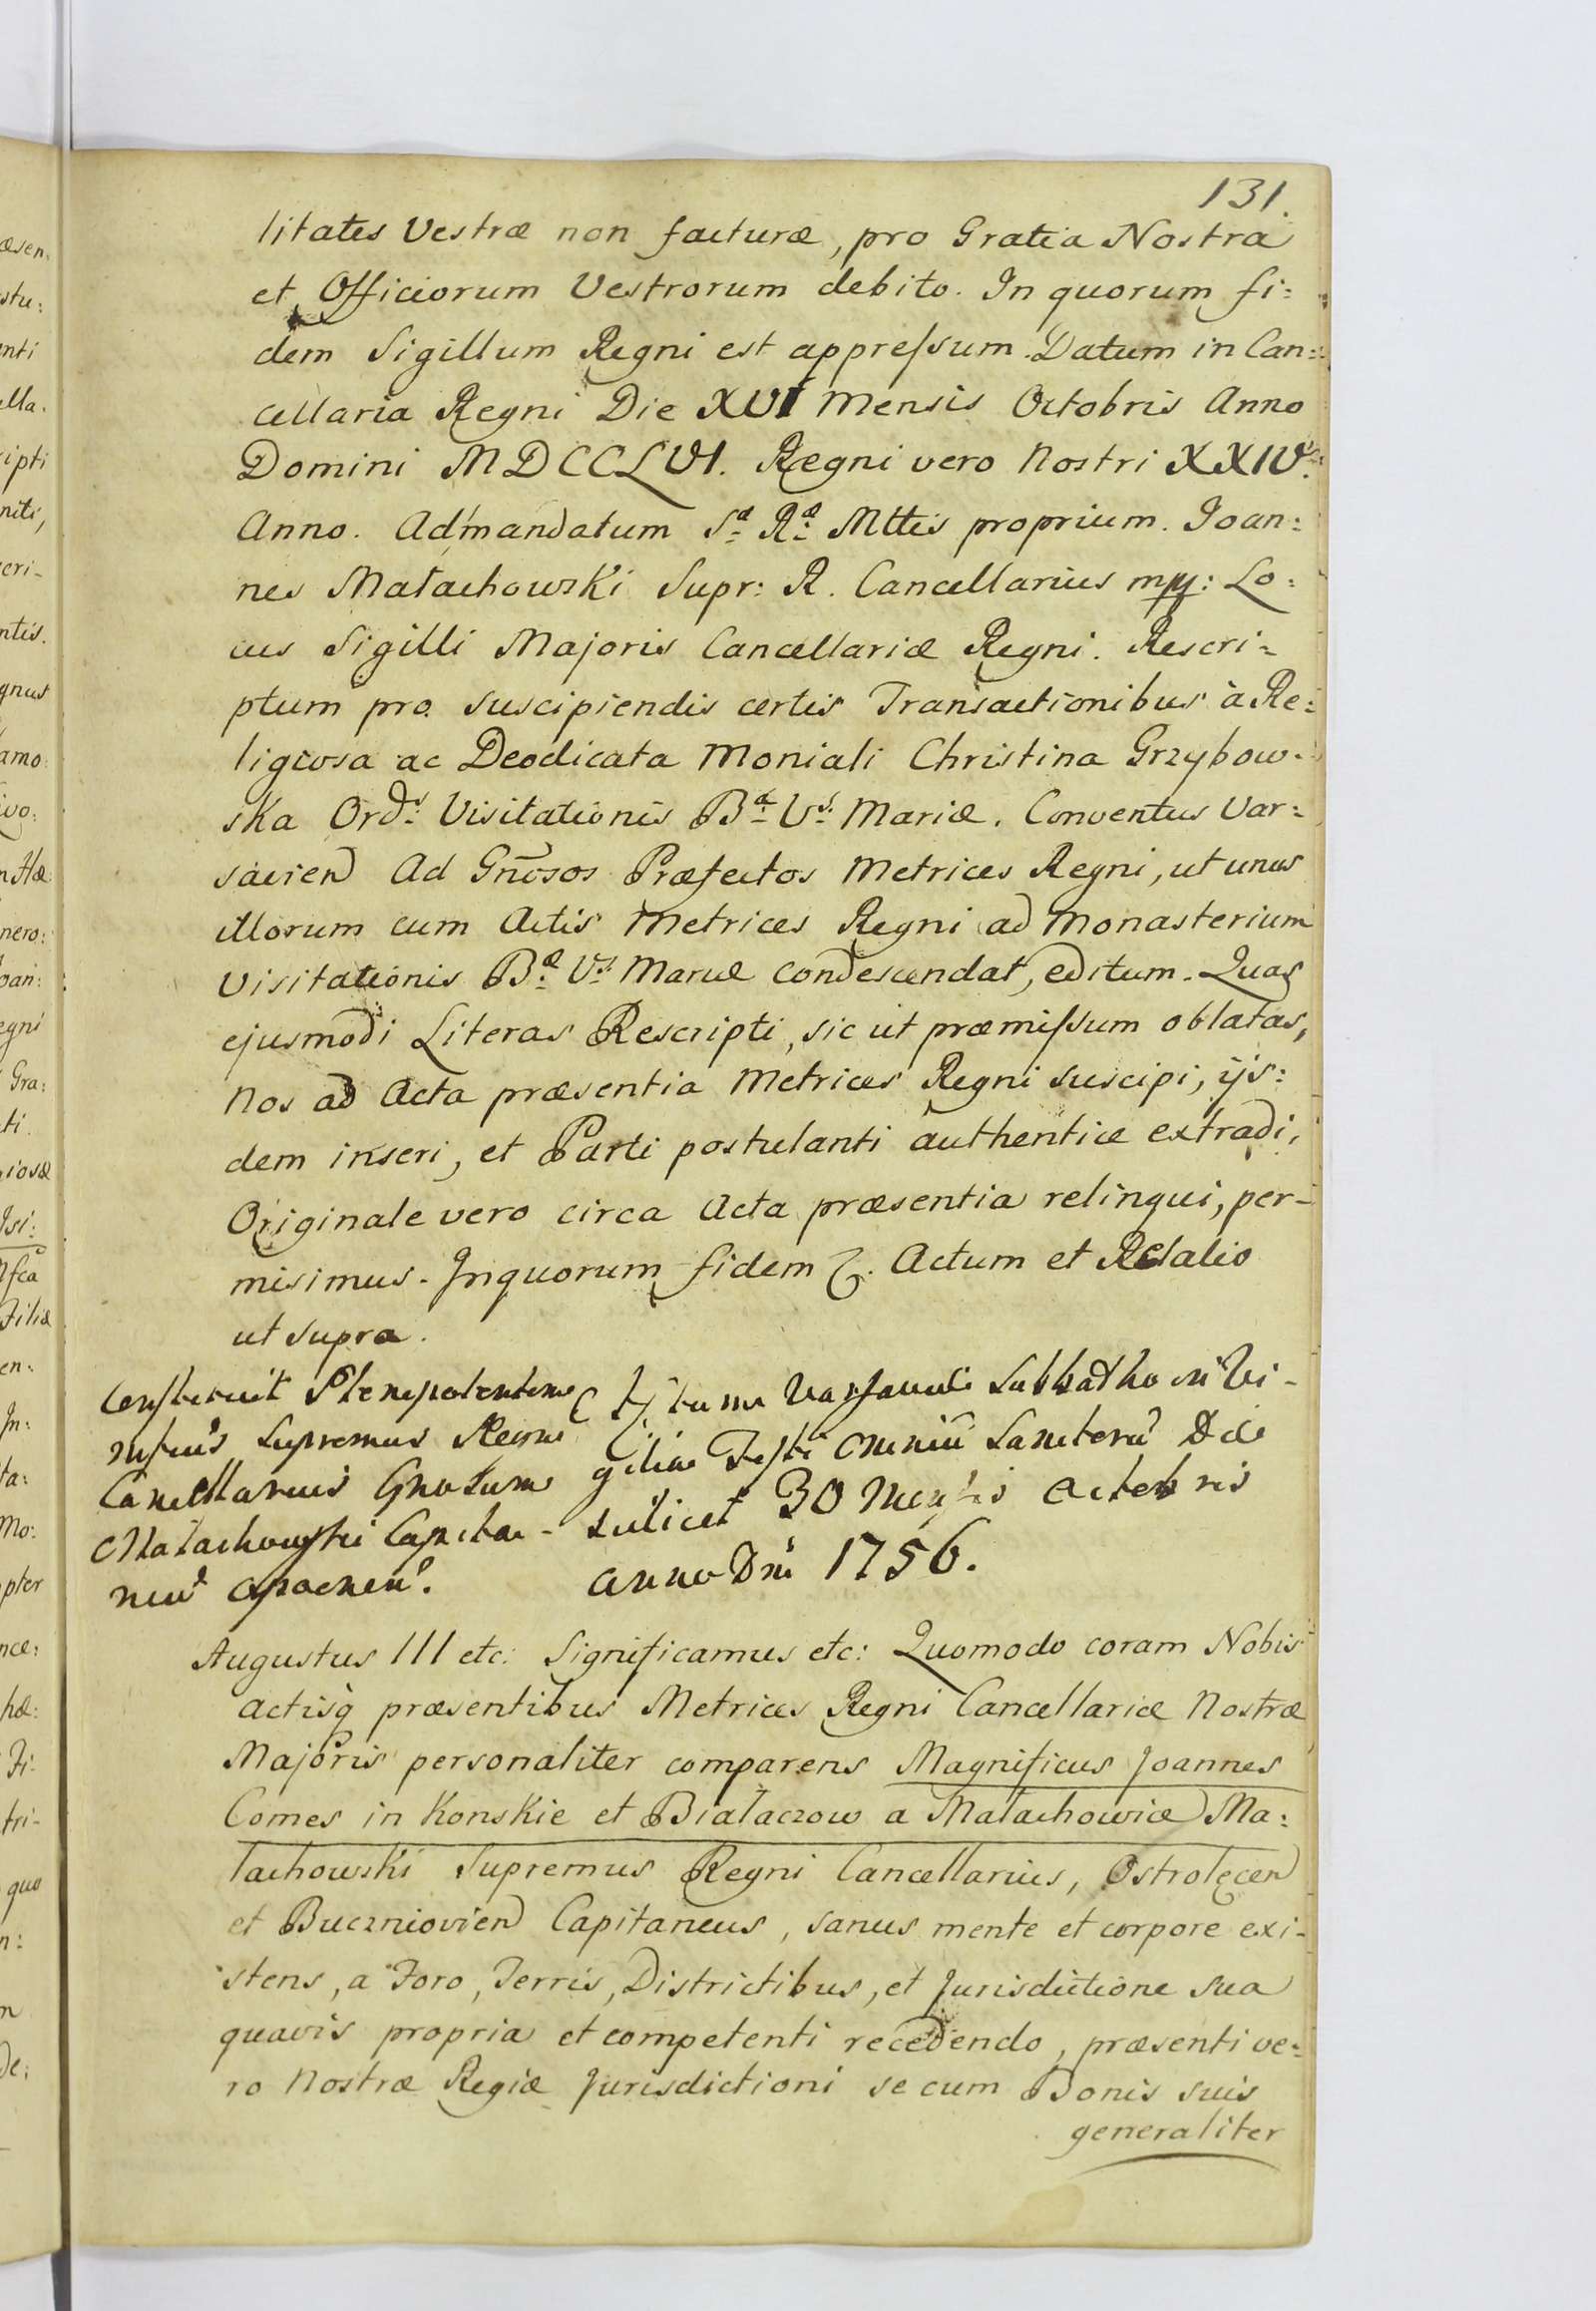 131.
litates Vestræ non facturæ, pro Gratia Nostra
et Officiorum Vestrorum debito. In quorum fi:
dem Sigillum Regni est appreſsum. Datum in Can:
cellaria Regni Die XVI Mensis Octobris Anno
Domini MDCCLVI. Regni vero Nostri XXIV.
Anno. Ad mandatum Sæ Ræ Mttis proprium. Joan:
nes Małachowski Supr: R. Cancellarius mp: Lo:
cus Sigilli Majoris Cancellariæ Regni. Rescri:
ptum pro suscipiendis certis Transactionibus à Re:
ligiosa ac Deodicata Moniali Christina Grzybow:
ska Ords Visitationis Bæ Vs Mariæ. Conventus Var:
savien Ad Gnosos Præfectos Metrices Regni, ut unus
illorum cum Actis Metrices Regni ad Monasterium
Visitationis Bæ Vs Mariæ condescendat, editum. Quas
ejusmodi Literas Rescripti, sic ut præmiſsum oblatas,
Nos ad Acta præsentia Metrices Regni suscipi, ijs:
dem inseri, et Parti postulanti authentice extradi,
Originale vero circa Acta præsentia relinqui, per-
misimus. Inquorum fidem &. Actum et
ut supra.
Constituit Plenipotentem
Supremus Regni
Cancellarius Gnosum
Małachowski Capita-
neu opocnen.
Actum Varsaviæ Sabbatho in Vi-
gilia Festi Omniu Sanctoru Die
scilicet 30 Mensis Octobris
anno Dni 1756.
Augustus III etc: Significamus etc: Quomodo coram Nobis
actisq præsentibus Metrices Regni Cancellariæ Nostræ
Majoris personaliter comparens Magnificus Joannes
Comes in Konskie et Białaczow a Małachowice Ma:
łachowski Supremus Regni Cancellarius, Ostrołęcen
et Buczniovien Capitaneus, sanus mente et corpore exi-
stens, a Foro, Terris, Districtibus, et Jurisdictione sua
quavis propria et competenti recedendo, præsenti ve:
ro Nostræ Regiæ Jurisdictioni se cum Bonis suis
generaliter